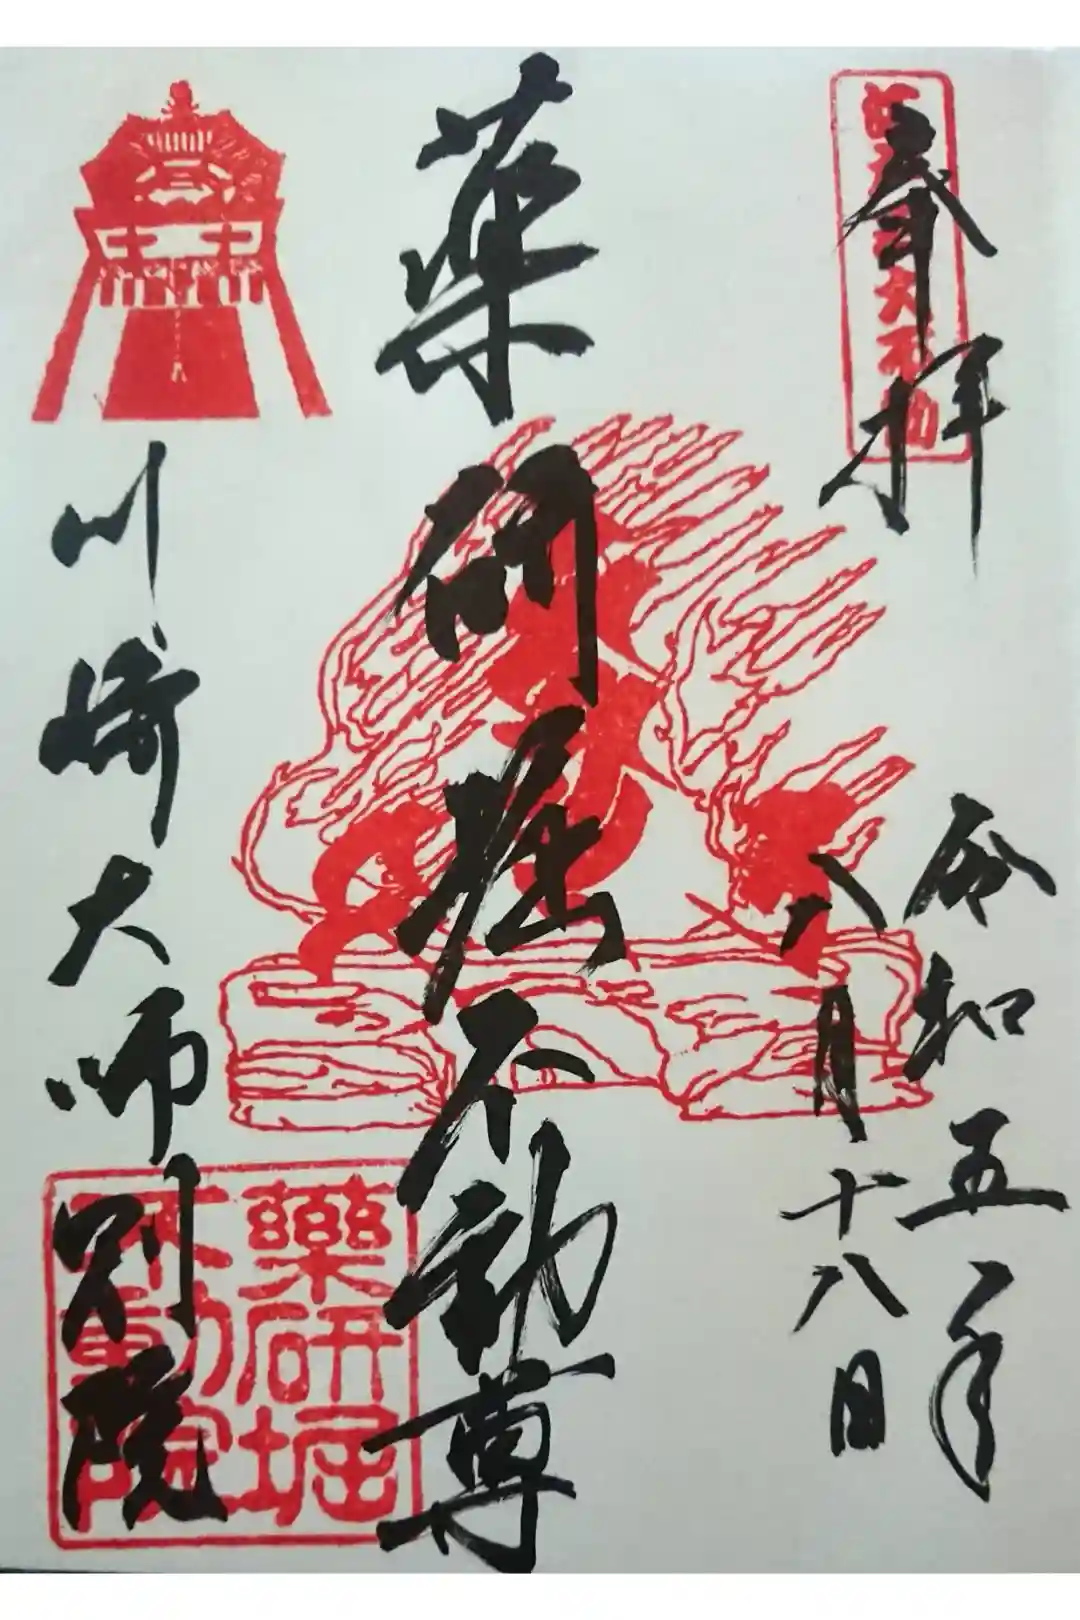 奉拝
令和五年
八月十八日
薬研堀不動尊
川崎大師別院
薬研堀
不動院